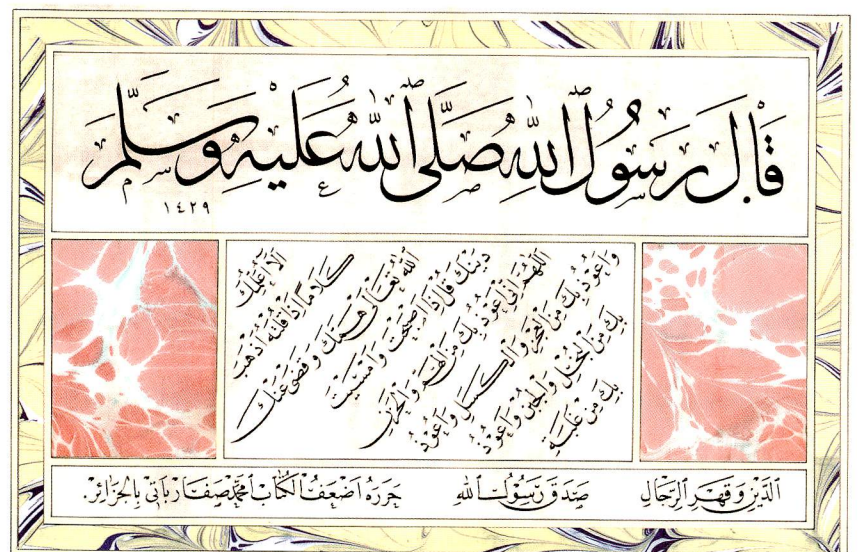 قَالَ رَسُولُ اللهِ صَلَّى اللهُ عَلَيْهِ وَسَلَّمَ
١٤٢٩
أَلَا أُعَلِّمُكَ
كَلَامًا إِذَا قُلْتَهُ أَذْهَبَ
اللهُ تَعَالَى هَمَّكَ وَقَضَى عَنْكَ
دَيْنَكَ قُلْ إِذَا أَصْبَحْتَ وَأَمْسَيْتَ
اللَّهُمَّ إِنِّي أَعُوذُ بِكَ مِنَ الْهَمِّ وَالْحَزَنِ
وَأَعُوذُ بِكَ مِنَ الْعَجْزِ وَالْكَسَلِ وَأَعُوذُ
بِكَ مِنَ الْبُخْلِ وَالْجُبْنِ وَأَعُوذُ
بِكَ مِنْ غَلَبَةِ
الدَّيْنِ وَقَهْرِ الرِّجَالِ صَدَقَ رَسُولُ اللهِ حَرَّرَهُ أَضْعَفُ الْكُتَّابِ مُحَمَّد صَفَارْبَاتِي بِالْجَزَائِرْ.